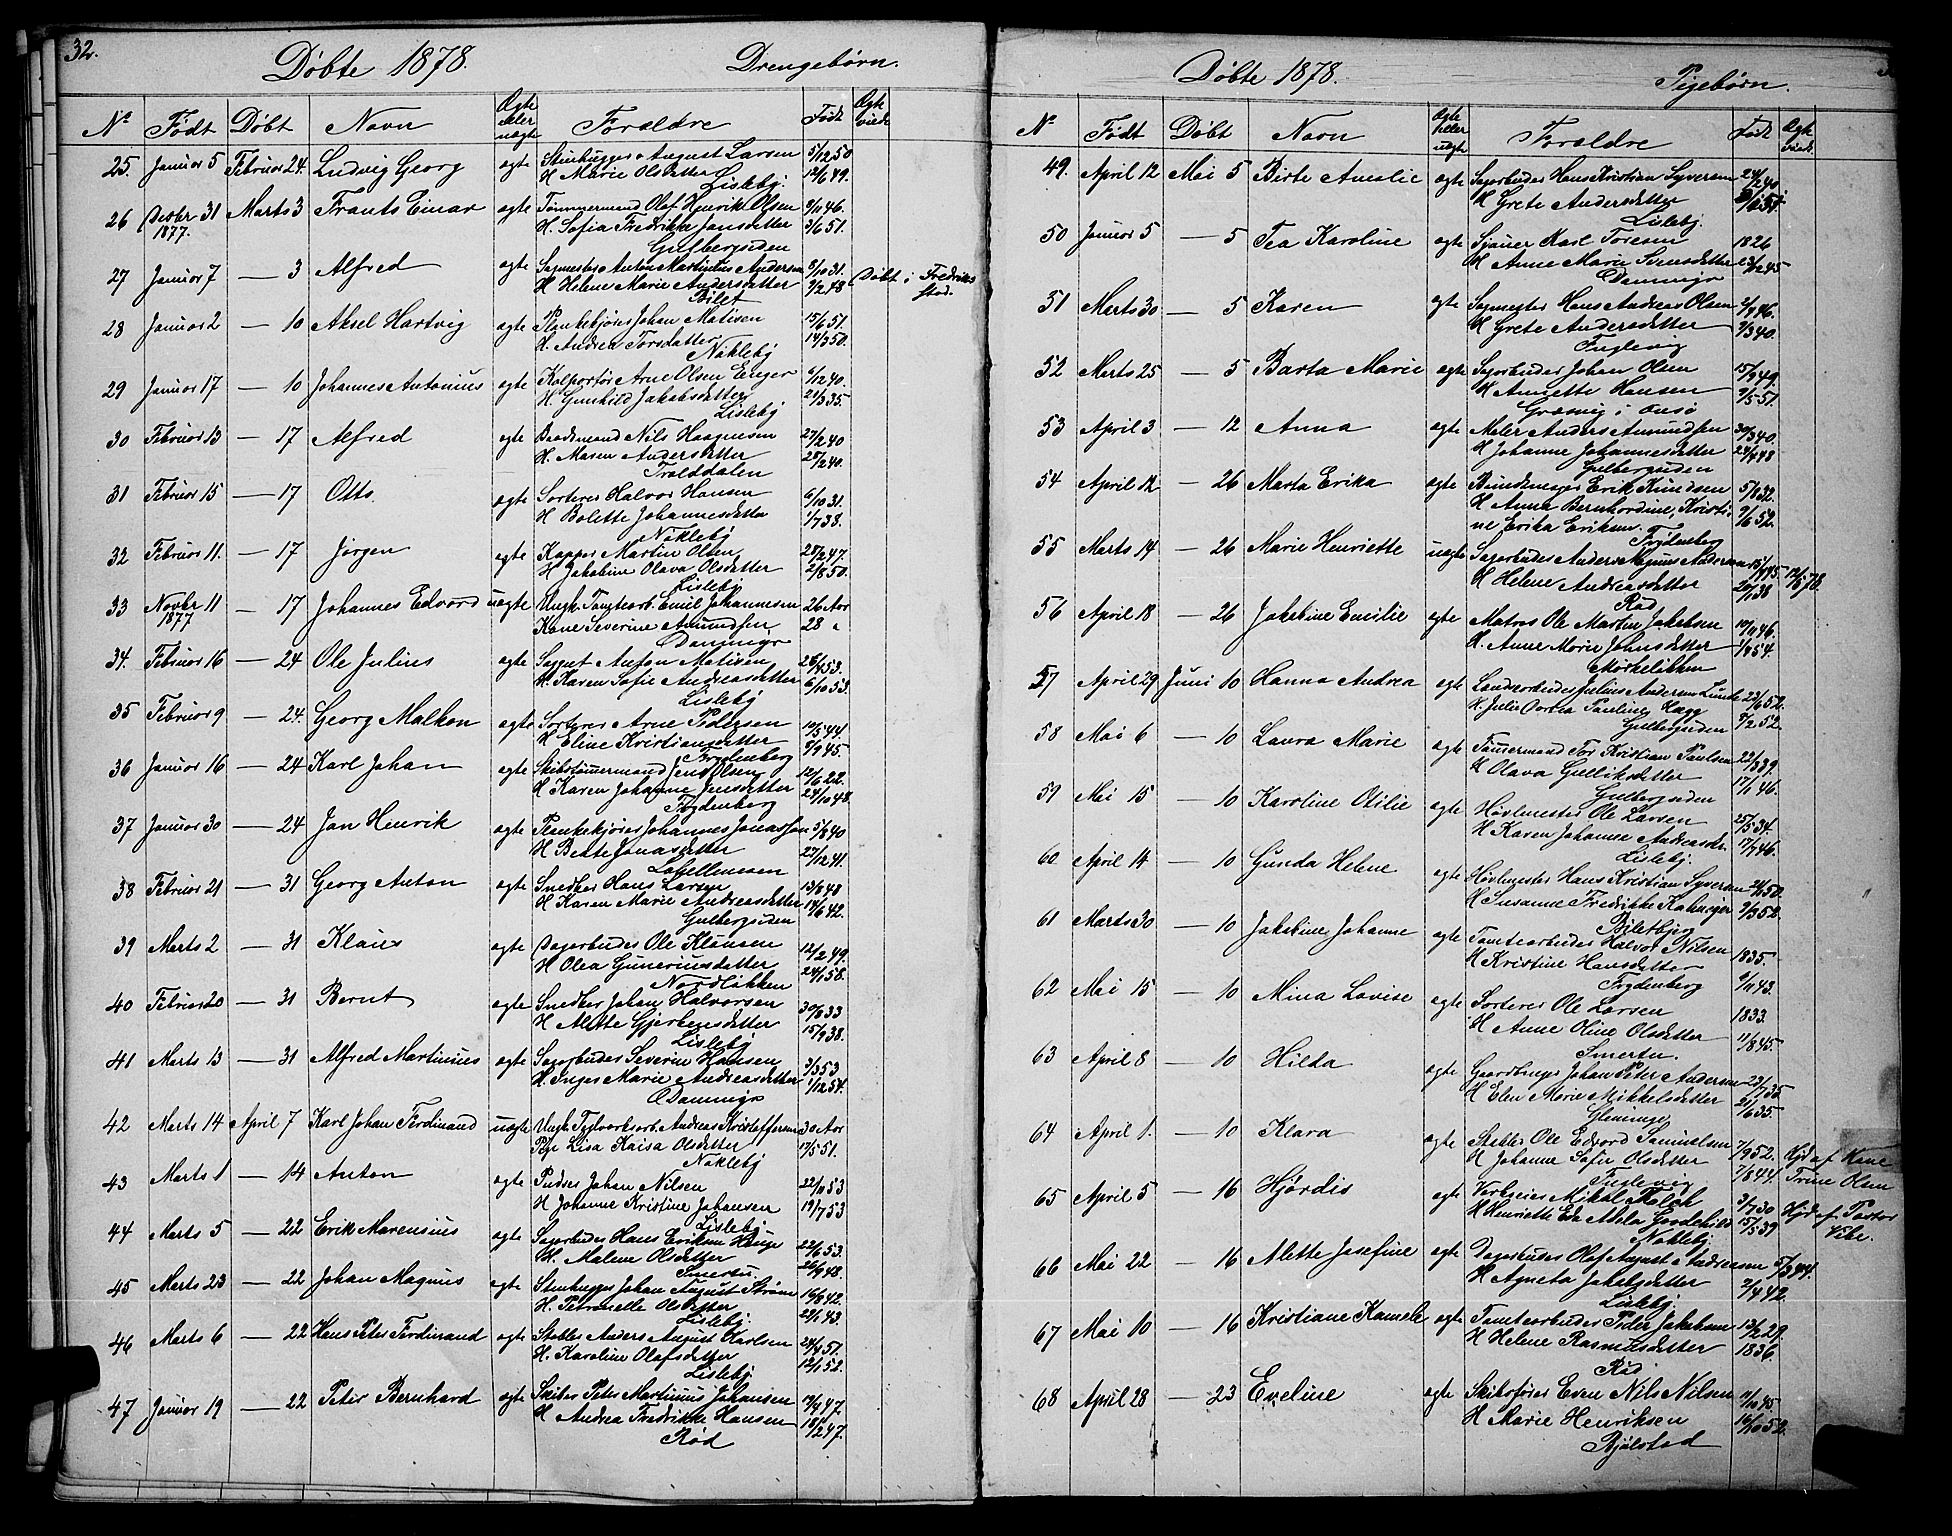 32.
Døbte 1878. Drengebørn.
No Født Døbt Navn Ægte eller uægte Forældre Født Ægteviede
25. Januar 5 Februar 24. Ludvig Georg ægte Stenhugger August Larsen 5/12 50
H Marie Olsdatter 12/6 49.
Lisleby.
26 Desbr 31 Marts 3 Frants Einar ægte Tømmermand Olaf Henrik Olsen 9/11 46.
1877. H. Sofia Fredrikke Jansdatter 3/6 51.
Gulbergsiden
27 Januar 7 — 3 Alfred ægte Sagmester Anton Martinius Andersen 8/10 31. Døbt i Fredriksstad.
H Helene Marie Andersdatter 9/2 48
Bilet
28 Januar 2 — 10 Aksel Hartvig ægte Plankekjører Johan Matisen 15/6 51.
H. Andrea Torsdatter 14/3 50.
Nøkleby
29 Januar 17 — 10 Johannes Antonius ægte Kolportør Arne Olsen Enger 6/12 40.
H. Gunhild Jakobsdatter 21/3 35.
Lisleby
30 Februar 13 — 17 Alfred ægte Baadsmand Nils Haagensen 27/2 40
H. Maren Andersdatter 28/2 40.
Tralddalen
31 Februar 15 — 17 Otto. ægte Sorterer Halvor Hansen 6/10 31.
H Bolette Johannesdatter 1/7 38.
Nøkleby
32 Februar 11. — 17 Jørgen ægte Kapper Martin Olsen 28/2 47.
H Jakobine Olava Olsdatter 2/8 50.
Lisleby
33 Novbr 11 — 17 Johannes Edvard uægte Ungk. Tomtearb. Emil Johannesen 26 Aar
1877 Kone Severine Amundsen 28 "
Damminge
34. Februar 16 — 24 Ole Julius ægte Saggut Anton Matisen 28/4 53.
H. Karen Sofie Andreasdatter 6/10 53.
Lisleby
35 Februar 9 — 24. Georg Malkon ægte Sorterer Arne Pedersen 10/5 44
H Eline Kristiansdatter 9/9 45.
Frydenberg
36 Januar 16 — 24 Karl Johan ægte Skibstømmermand Jens Olsen 12/6 22.
H Karen Johanne Jensdatter 24/10 48.
Frydenberg
37 Januar 30 — 24 Jan Henrik ægte Plankekjører Johannes Jonassen 5/8 40
H Beate Jonasdatter 27/12 41.
Labellmoen
38 Februar 21 — 31 Georg Anton ægte Snedker Hans Larsen 13/8 48
H Karen Marie Andreasdatter 14/6 42.
Gulbergsiden
39 Marts 2 — 31 Klaus ægte Dagarbeider Ole Klausen 12/2 49.
H Olea Gunerinusdatter 24/1 58.
Nordløkken
40 Februar 20 — 31 Bernt ægte Snedker Johan Halvorsen 30/8 33
H Alette Gjerbensdatter 15/9 38.
Lisleby
41 Marts 13 — 31 Alfred Martinius ægte Sagarbeider Severin Hansen 3/3 53
H. Inger Marie Andreasdatter 1/12 54.
Damminge
42 Marts 14 April 7 Karl Johan Ferdinand uægte Ungk. Teglverksarb. Andreas Kristoffersen 30 Aar
Pige Lisa Kaisa Olsdatter 17/5 51.
Nøkleby
43 Marts 1 — 14 Anton ægte Pudser Johan Nilsen 22/11 53
H Johanne Kristine Johansen 19/7 53
Lisleby
44 Marts 5 — 22 Erik Marensius ægte Sagarbeider Hans Eriksen Hauge 22/6 53.
H. Malene Olsdatter 26/9 48.
Smertu.
45 Marts 23 — 22 Johan Magnus ægte Stenhugger Johan August Strøm 16/8 42.
H. Petronelle Olsdatter 29/1 43.
Lisleby.
46 Marts 6 — 22 Hans Peter Ferdinand ægte Stabler Anders August Karlsen 24/9 51.
H. Karoline Olafsdatter 12/1 52.
Lisleby
47 Januar 19 — 22 Peter Bernhard ægte Skibsr Peter Martinius Johansen 19/9 47.
H Andrea Fredrikke Hansen 18/2 47.
Rød
Døbte 1878. Pigebørn.
No Født Døbt Navn Ægte eller uægte Forældre Født Ægteviede
49. April 12 Mai 5 Birte Amalie ægte Sagarbeider Hans Kristian Syversen 24/2 40
H Grete Andersdatter
Lisleby.
50 Januar 5 — 5 Tea Karoline ægte Sjauer Karl Toresen 1826
H Anne Marie Svensdatter 23/12 45
Damminge
51 Marts 30 — 5 Karen ægte Sagmester Hans Andreas Olsen 2/9 46.
H Grete Andersdatter 9/3 40.
Fuglevig
52 Marts 25 — 5 Barta Marie ægte Sagarbeider Johan Olsen 15/9 49.
H Annette Hansen 9/5 51.
Græsvig i Onsø
53 April 3 — 12 Anna ægte Maler Anders Amundsen 30/3 40.
H Johanne Johannesdatter 24/9 48
Gulbergsiden
54 April 12 — 26 Marta Erika ægte Bundtmager Erik Knudsen 5/1 32.
H Anna Bernhardine, Kristine Erika Eriksen. 9/6 52.
Frydenberg
55 Marts 14 — 26 Marie Henriette uægte Sagarbeider Anders Magnus Andersen 15/9 45 12/5 78.
H Helene Andreasdatter 20/1 38
Rød
56 April 18 — 26 Jakobine Emilie ægte Matros Ole Martin Jakobsen 10/11 46.
H. Anne Marie Johnsdatter 1/8 54.
Mørkeløkken
57 April 29 Juni 10 Hanna Andrea ægte Landarbeider Julius Andersen Lunde 22/6 52.
H. Julie Dorthea Pauline Hægg 9/2 52.
Gulbergsiden
58 Mai 6 — 10 Laura Marie ægte Tømmermand Tor Kristian Paulsen 22/3 39.
H Olava Gulliksdatter 17/1 46.
Gulbergsiden
59 Mai 15 — 10 Karoline Otilie ægte Høvlmester Ole Larsen 25/5 34.
H Karen Johanne Andreasdtr. 17/7 46.
Lisleby.
60 April 14 — 10 Gunda Helene ægte Høvlmester Hans Kristian Syversen 24/1 50.
H Susanne Fredrikke 9/3 52.
Biletbjerg
61 Marts 30 — 10 Jakobine Johanne ægte Tomtearbeider Halvor Nilsen 1835.
H Kristine Hansdatter 6/11 43.
Frydenberg
62 Mai 15 — 10 Mina Lovise ægte Sorterer Ole Larsen 1833.
H Anne Oline Olsdatter 11/8 45.
Smertu.
63 April 8 — 10 Hilda ægte Gaardbruger Johan Peter Andersen 23/7 35
H Elen Marie Mikkelsdatter 21/6 35.
Gleninge
64 April 1. — 10 Klara ægte Stabler Ole Edvard Samuelsen 7/9 52. Hjd af Kone
H Johanne Sofie Olsdatter 7/8 44. Trine Olsen
Fuglevig
65 April 5 — 16 Hjørdis ægte Verkseier Mikal Kolch 3/7 30 Hjd af Pastor
H Henriette Eda Abela Gordehild 15/5 39 Vibe.
Nøkleby
66 Mai 22 — 16 Alette Josefine ægte Dagarbeider Olaf August Andersen 5/3 44.
H Agneta Jakobsdatter 9/4 42.
Lisleby
67 Mai 10 — 16 Kristiane Kamele ægte Tomtearbeider Peder Jakobsen 13/2 29.
H Helene Rasmusdatter 1836.
Rød
68 April 28 — 23 Eveline ægte Skibsfører Even Nils Nilsen 11/10 45
H Marie Henriksen 16/10 52.
Bjølstad